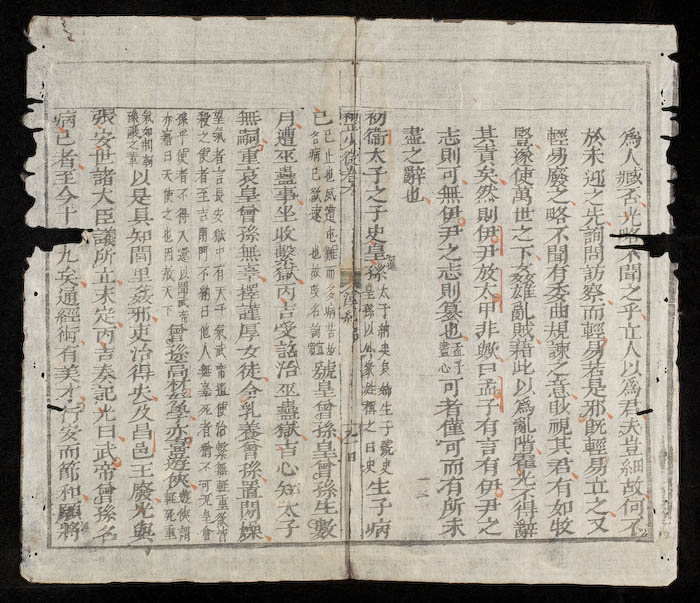 爲人臧否光略不聞之乎立人以爲君夫豈細故何不
於未迎之先詢問訪察而輕易若是邪既輕易立之又
輕易廢之略不聞有委曲規諫之意眂視其君有如牧
豎遂使萬世之下姦雄亂賊藉此以爲亂階霍光不得辭
其責矣然則伊尹放太甲非歟曰孟子有言有伊尹之
志則可無伊尹之志則簒也孟子盡心可者僅可而有所未
盡之辭也
初衛太子之子史皇孫太子納史良娣生子號史皇孫以外家姓稱之曰史生子病
已號皇曾孫皇曾孫生數
月遭巫蠱事坐收繫獄丙吉受詔治巫蠱獄吉心知太子
無嗣重哀皇曾孫無辜擇謹厚女徒令乳養曾孫置閒燥
望氣者言長安獄中有天子氣武帝遣使治繫無輕重皆
殺之使者至吉閉門不納曰他人無辜死者猶不可況皇曾
孫乎使者不得入還以聞武帝亦寤曰天使之也因赦天下曾孫高材好學亦喜遊俠遊俠謂輕死重
氣如荆軻豫讓之輩以是具知閭里姦邪吏治得失及昌邑王廢光與
張安世諸大臣議所立未定丙吉奏記光曰武帝曾孫名
病已者至今十八九矣通經術有美才行安而節和願將